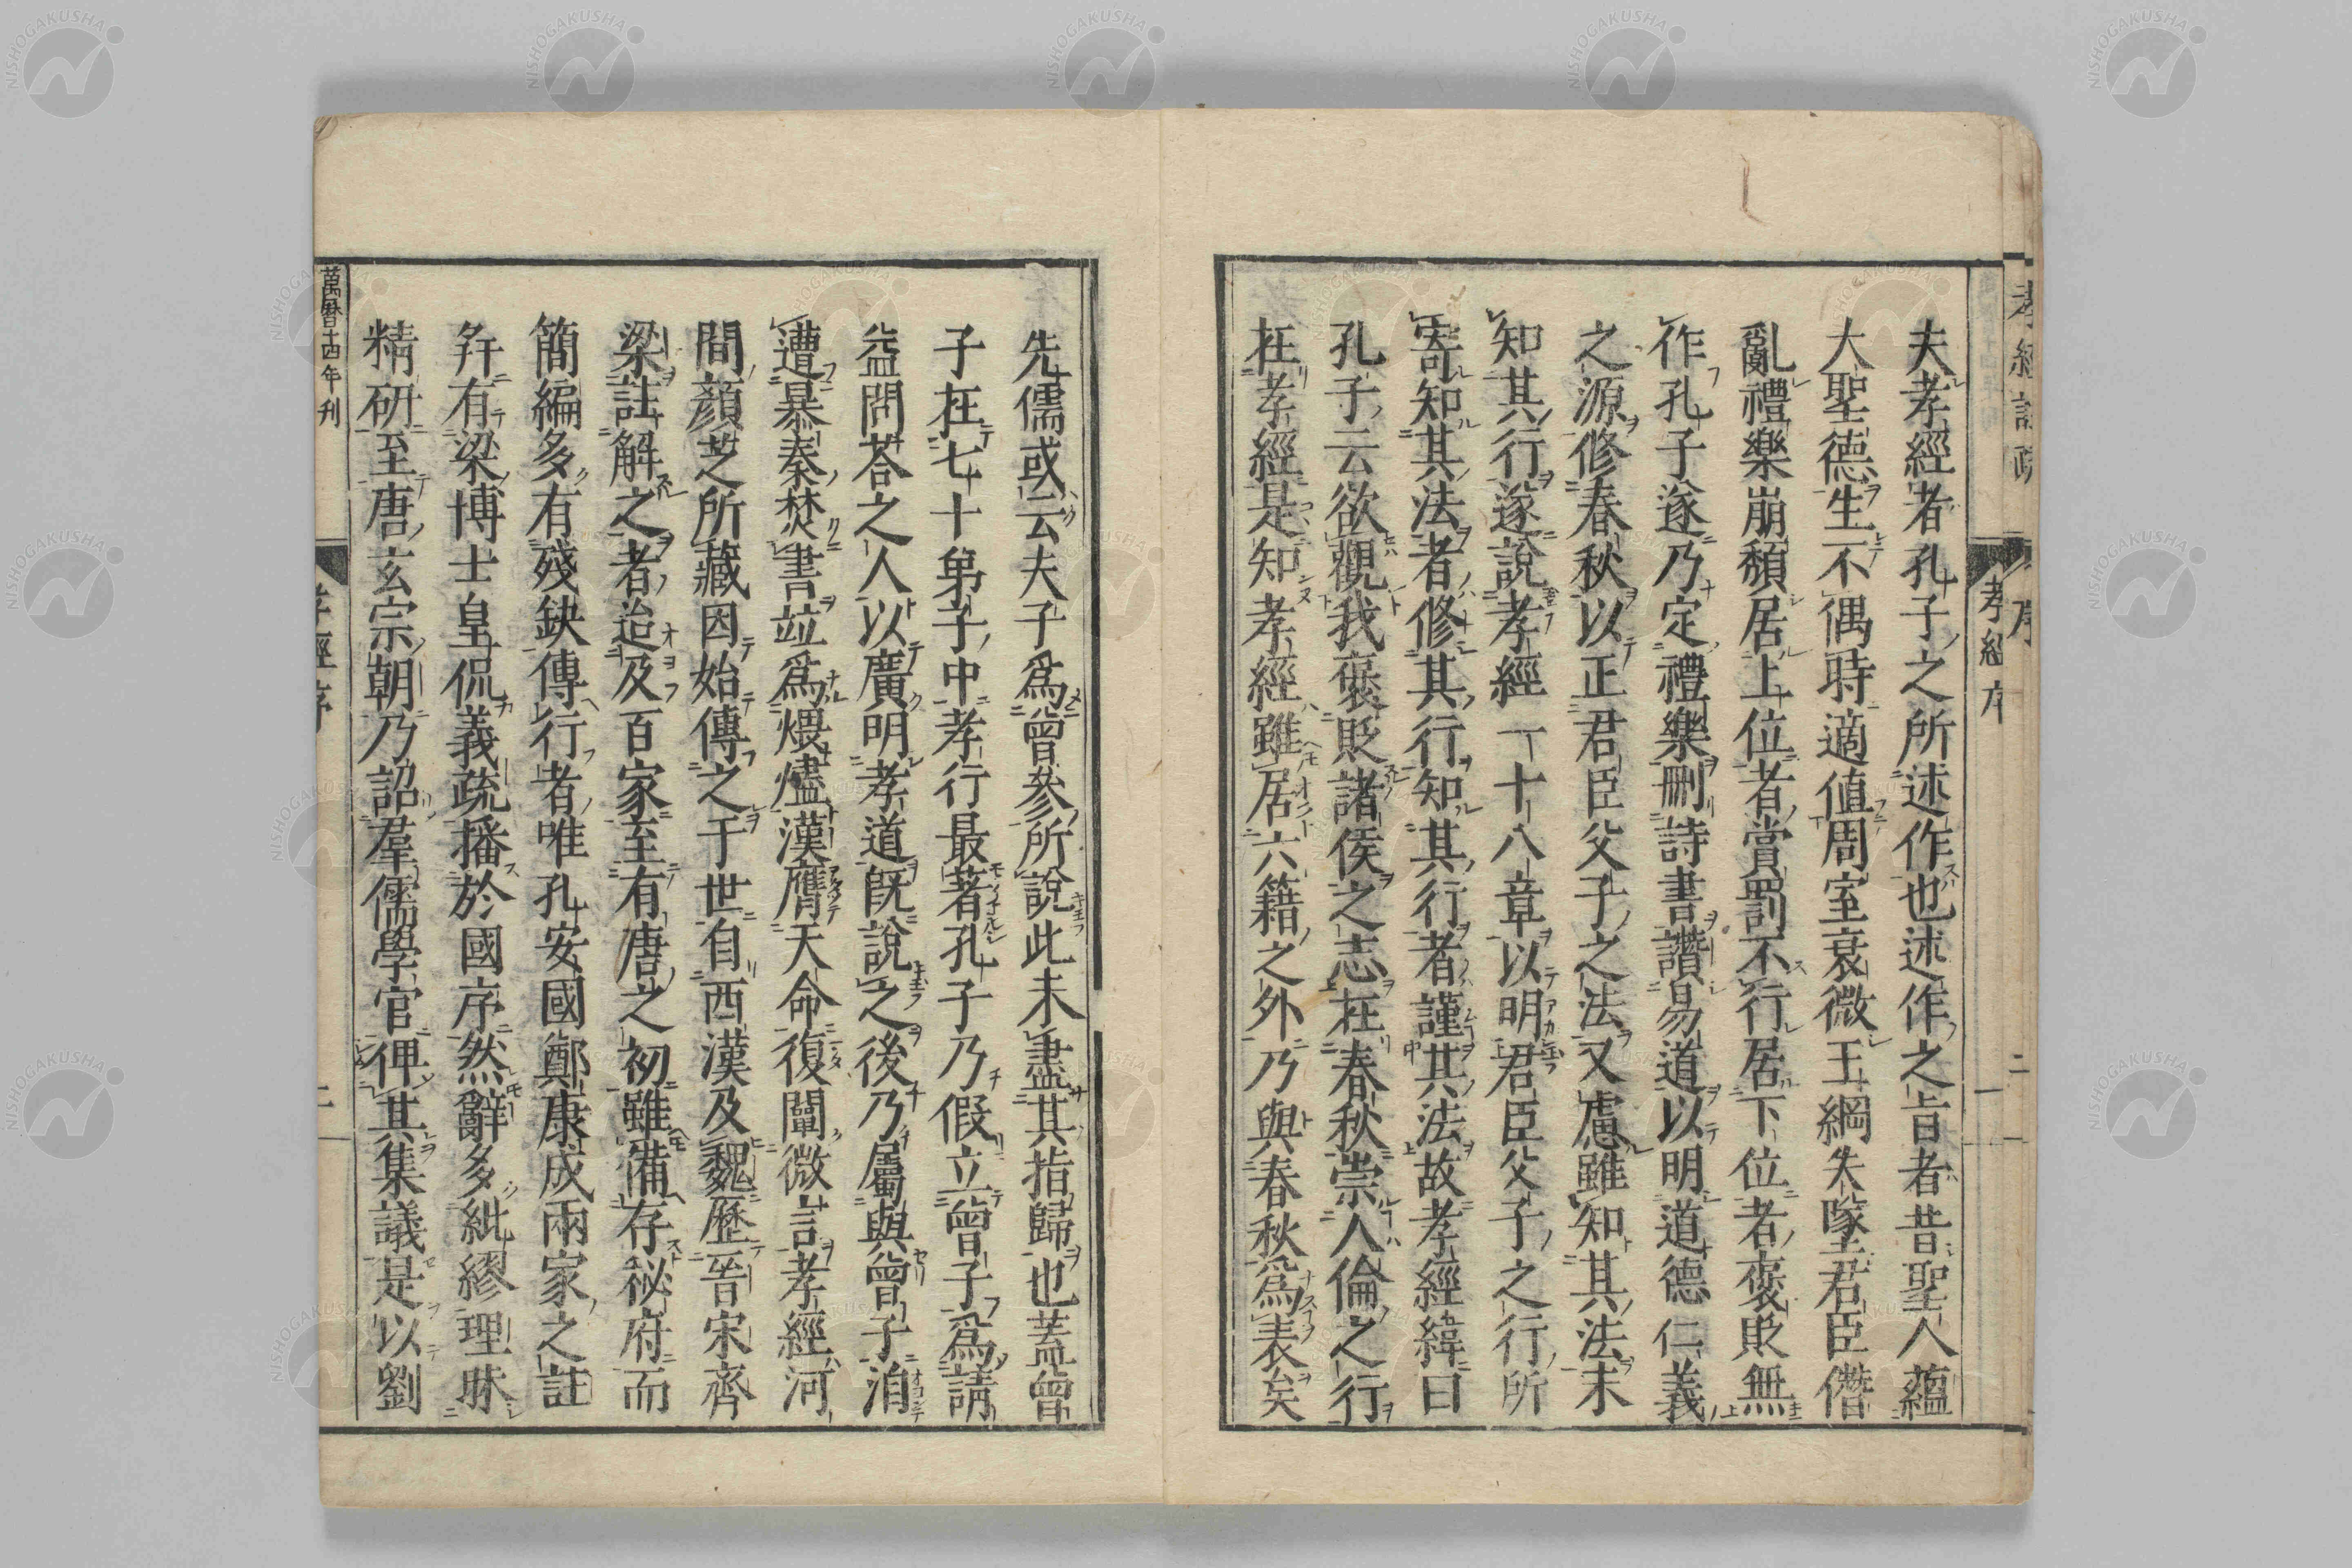 夫孝經者孔子之所述作也述作之旨者昔聖人蘊
大聖德生不偶時適值周室衰微王綱失墜君臣僭
亂禮樂崩頹居上位者賞罰不行居下位者褒貶無
作孔子遂乃定禮樂刪詩書讚易道以明道德仁義
之源修春秋以正君臣父子之法又慮雖知其法未
知其行遂說孝經一十八章以明君臣父子之行所
寄知其法者修其行知其行者謹其法故孝經緯曰
孔子云欲觀我褒貶諸侯之志在春秋崇人倫之行
在孝經是知孝經雖居六籍之外乃與春秋為表矣
孝經序
先儒或云夫子為曾參所說此未盡其指歸也蓋曾
子在七十弟子中孝行最著孔子乃假立曾子為請
益問荅之人以廣明孝道既說之後乃屬與曾子洎
遭暴秦焚書竝為煨燼漢膺天命復闡微言孝經河
間顏芝所藏因始傳之于世自西漢及魏歷晉宋齊
梁註解之者迨及百家至有唐之初雖備存祕府而
簡編多有殘缺傳行者唯孔安國鄭康成兩家之註
并有梁博士皇侃義疏播於國序然辭多紕繆理昧
精研至唐玄宗朝乃詔羣儒學官俾其集議是以劉
萬曆十四年刊
孝經序
二